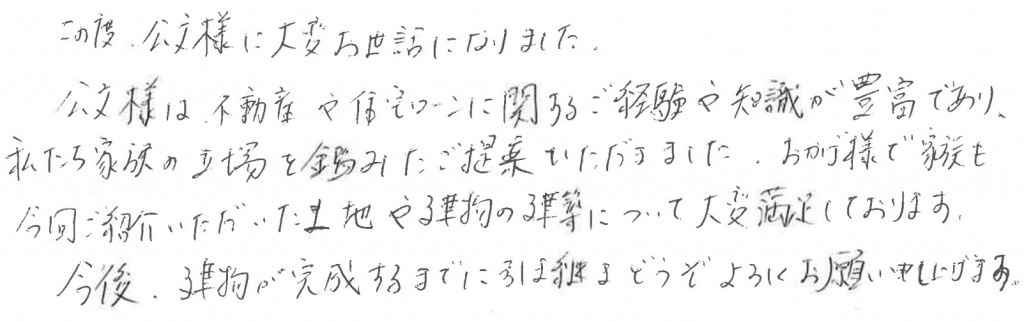 この度、公文様に大変お世話になりました。
公文様は、不動産や住宅ローンに関するご経験や知識が豊富であり、
私たち家族の立場を鑑みたご提案をいただきました。おかげ様で家族も
今回ご紹介いただいた土地や建物の建築について大変満足しております。
今後、建物が完成するまでに引き継きどうぞよろしくお願い申し上げます。